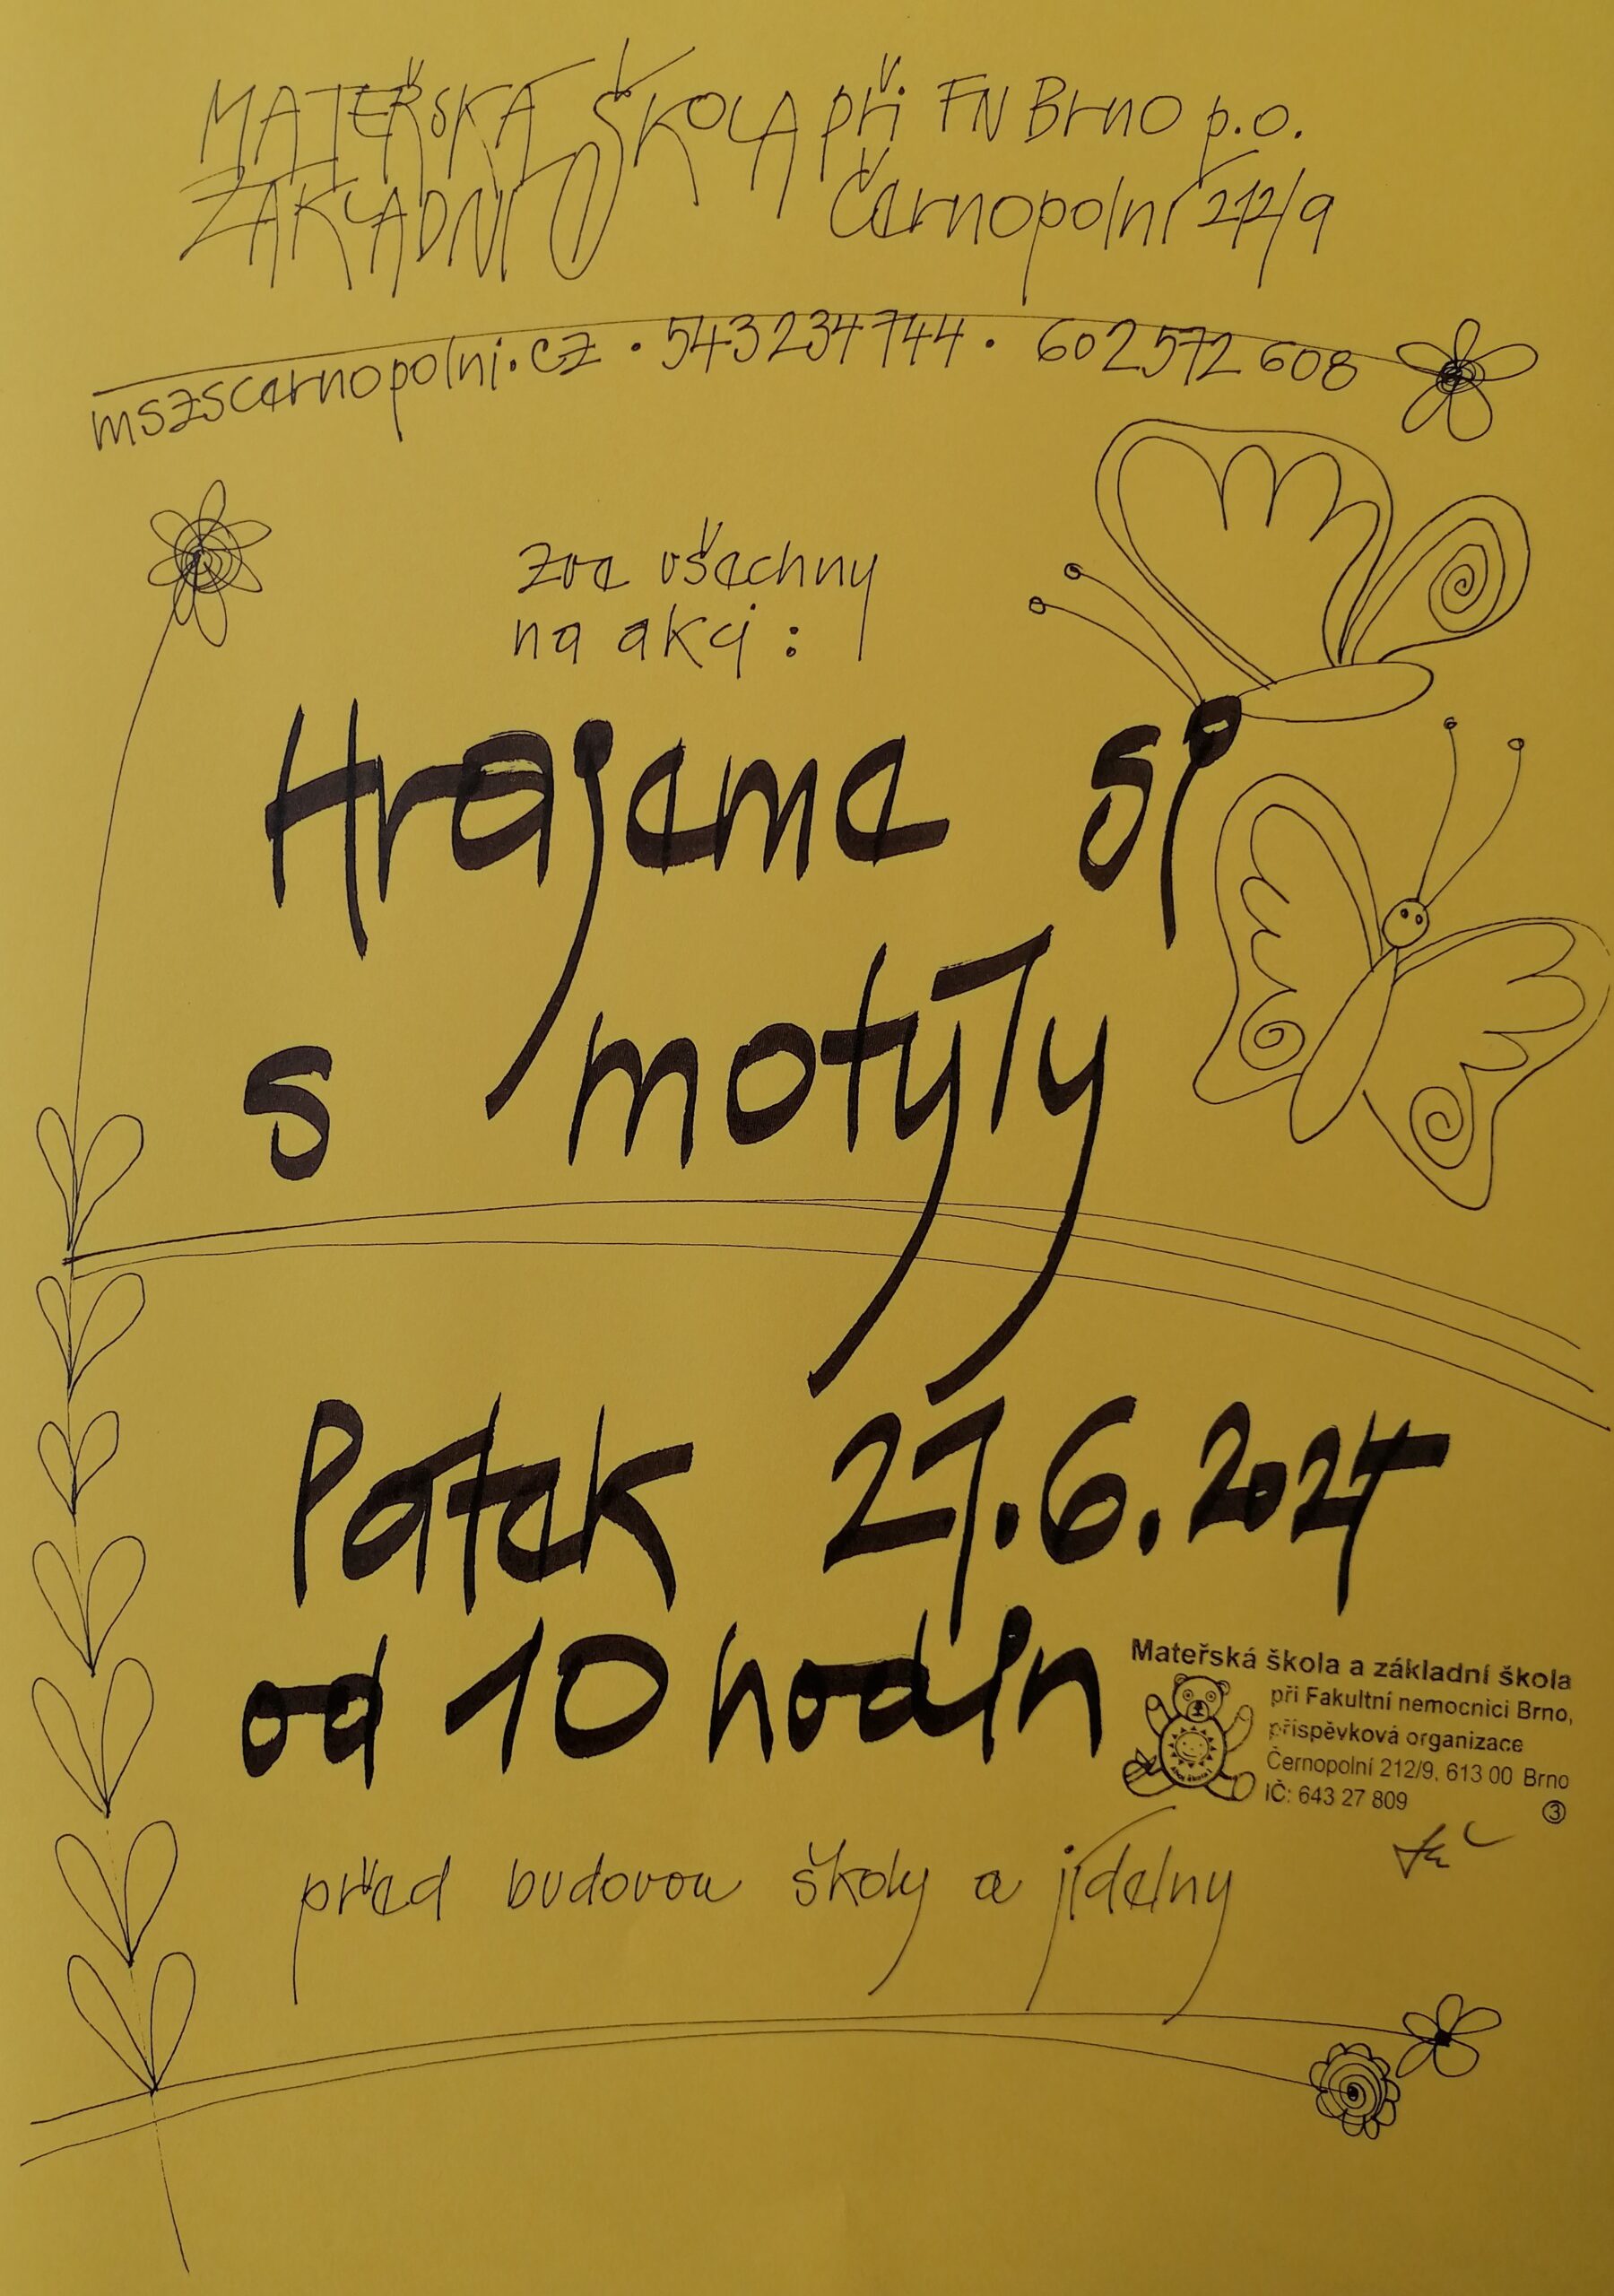 MATEŘSKÁ ŠKOLA při FN Brno p.o.
ZÁKLADNÍ Černopolní 212/9
mszscernopolni.cz · 543234744 · 602572608
zve všechny
na akci :
Hrajeme si
s motýly
Pátek 21.6.2024
od 10 hodin
Mateřská škola a základní škola
při Fakultní nemocnici Brno,
příspěvková organizace
Černopolní 212/9, 613 00 Brno
IČ: 643 27 809
3
před budovou školy a jídelny